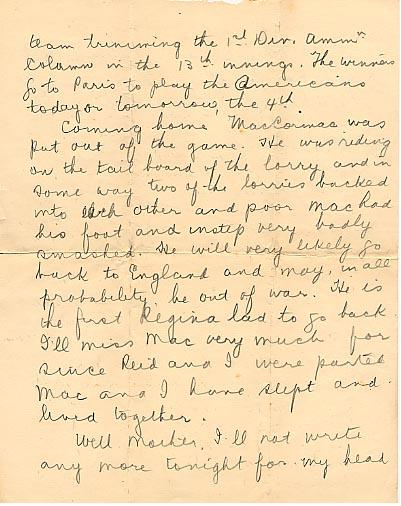 team trimming the 1st Div. Ammn
Column in the 13th innings. The winners
go to Paris to play the Americans
today or tomorrow, the 4th.
Coming home MacCormac was
put out of the game. He was riding
on the tail board of the lorry and in
some way two of the lorries backed
into each other and poor Mac had
his foot and instep very badly
smashed. He will very likely go
back to England and may, in all
probability, be out of war. He is
the first Regina lad to go back.
I'll miss Mac very much for
since Reid and I were parted
Mac and I have slept and
lived together.
Well Mother, I'll not write
any more tonight for my head